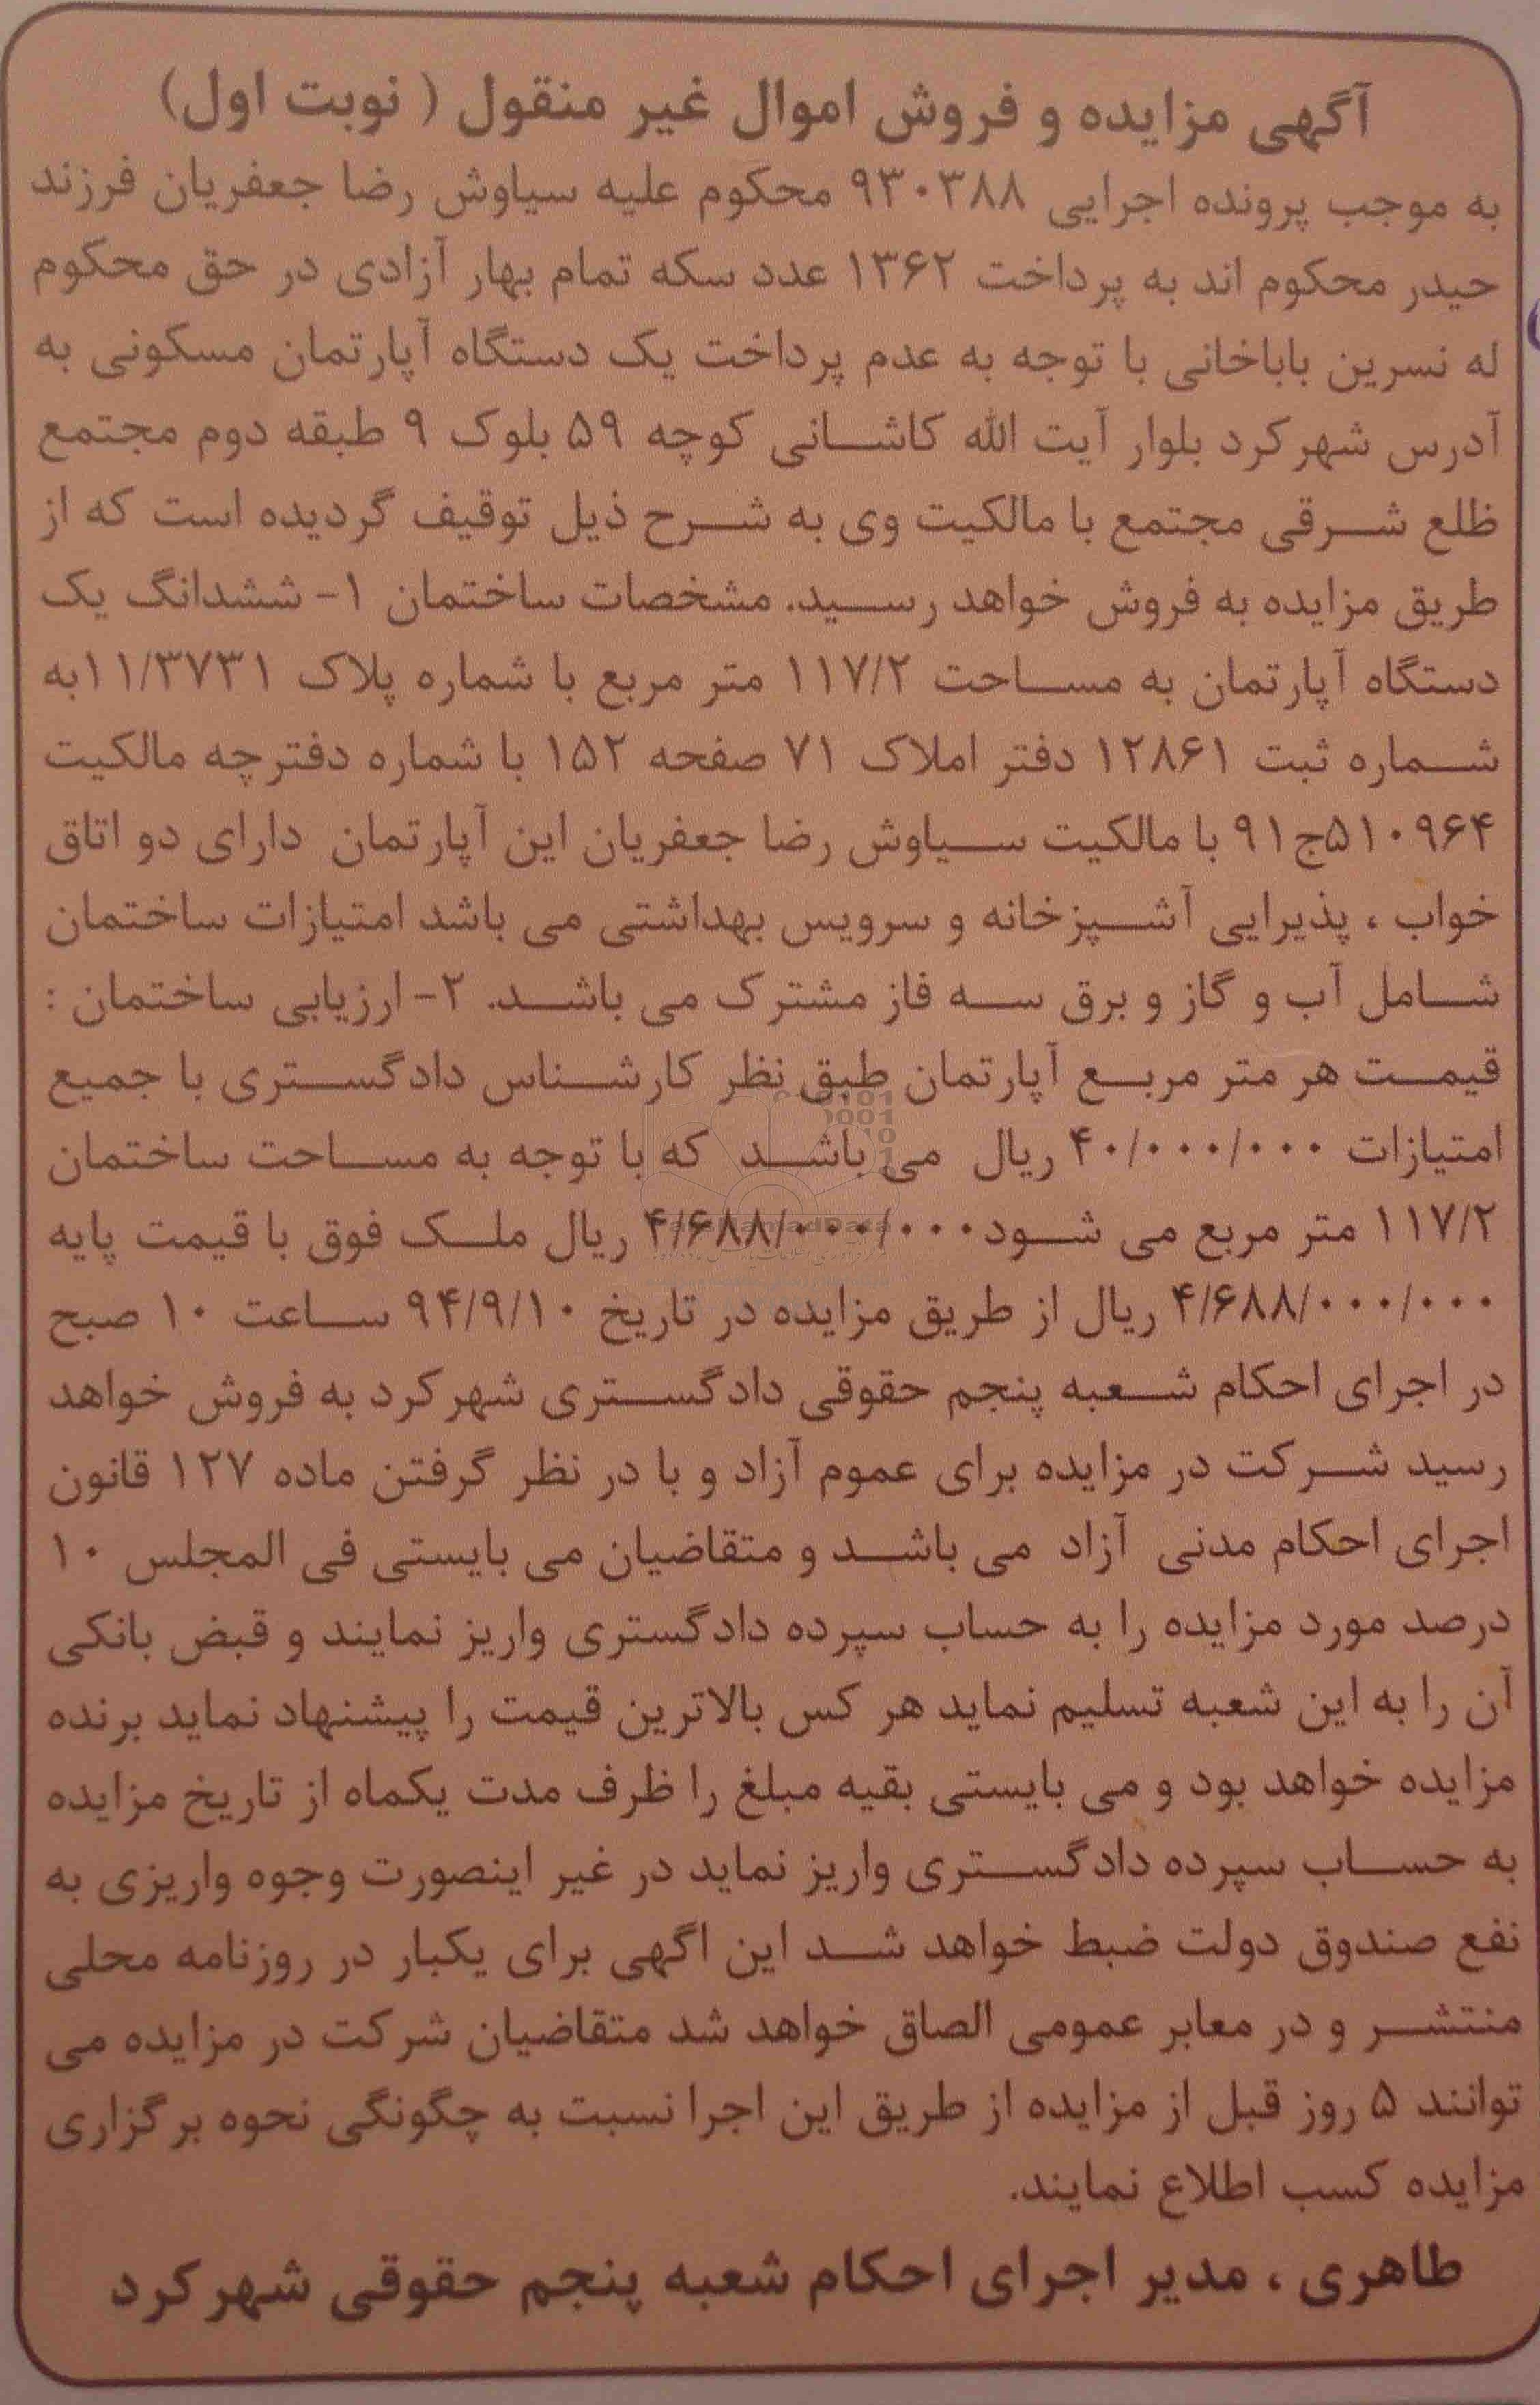 آگهی مزایده و فروش اموال غیر منقول ( نوبت اول)
به موجب پرونده اجرایی ۹۳۰۳۸۸ محکوم علیه سیاوش رضا جعفریان فرزند
حیدر محکوم اند به پرداخت ۱۳۶۲ عدد سکه تمام بهار آزادی در حق محکوم
له نسرین باباخانی با توجه به عدم پرداخت یک دستگاه آپارتمان مسکونی به
آدرس شهرکرد بلوار آیت الله کاشانی کوچه ۵۹ بلوک ۹ طبقه دوم مجتمع
ظلع شرقی مجتمع با مالکیت وی به شرح ذیل توقیف گردیده است که از
طریق مزایده به فروش خواهد رسید. مشخصات ساختمان ۱- ششدانگ یک
دستگاه آپارتمان به مساحت ۱۱۷/۲ متر مربع با شماره پلاک ۱۱/۳۷۳۱به
شماره ثبت ۱۲۸۶۱ دفتر املاک ۷۱ صفحه ۱۵۲ با شماره دفترچه مالکیت
۵۱۰۹۶۴ج۹۱ با مالکیت سیاوش رضا جعفریان این آپارتمان دارای دو اتاق
خواب ، پذیرایی آشپزخانه و سرویس بهداشتی می باشد امتیازات ساختمان
شامل آب و گاز و برق سه فاز مشترک می باشد. ۲- ارزیابی ساختمان :
قیمت هر متر مربع آپارتمان طبق نظر کارشناس دادگستری با جمیع
امتیازات ۴۰/۰۰۰/۰۰۰ ریال می باشد که با توجه به مساحت ساختمان
۱۱۷/۲ متر مربع می شود۴/۶۸۸/۰۰۰/۰۰۰ ریال ملک فوق با قیمت پایه
۴/۶۸۸/۰۰۰/۰۰۰ ریال از طریق مزایده در تاریخ ۹۴/۹/۱۰ ساعت ۱۰ صبح
در اجرای احکام شعبه پنجم حقوقی دادگستری شهرکرد به فروش خواهد
رسید شرکت در مزایده برای عموم آزاد و با در نظر گرفتن ماده ۱۲۷ قانون
اجرای احکام مدنی آزاد می باشد و متقاضیان می بایستی فی المجلس ۱۰
درصد مورد مزایده را به حساب سپرده دادگستری واریز نمایند و قبض بانکی
آن را به این شعبه تسلیم نماید هر کس بالاترین قیمت را پیشنهاد نماید برنده
مزایده خواهد بود و می بایستی بقیه مبلغ را ظرف مدت یکماه از تاریخ مزایده
به حساب سپرده دادگستری واریز نماید در غیر اینصورت وجوه واریزی به
نفع صندوق دولت ضبط خواهد شد این اگهی برای یکبار در روزنامه محلی
منتشر و در معابر عمومی الصاق خواهد شد متقاضیان شرکت در مزایده می
توانند ۵ روز قبل از مزایده از طریق این اجرا نسبت به چگونگی نحوه برگزاری
مزایده کسب اطلاع نمایند.
طاهری ، مدیر اجرای احکام شعبه پنجم حقوقی شهرکرد